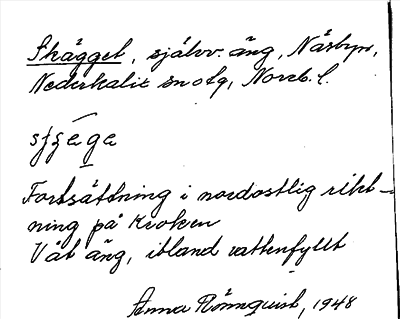 Skägget, självv. äng, Näsbyn,
Nederkalix snotg, Norrb. l.
Fortsättning i nordostlig rikt-
ning på Kroken
Våt äng, ibland vattenfyllt
Anna Rönnquist, 1948